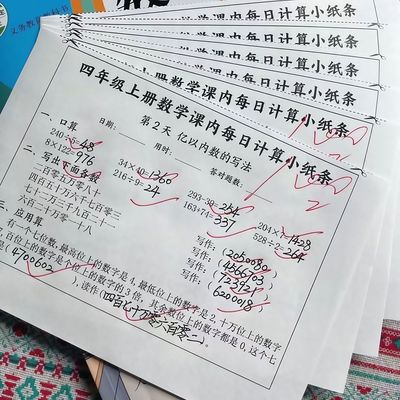 义务教育教科书
学课内每日计算小纸条
数学课内每日计算小纸条
数学课内每日计算小纸条
上册数学课内每日计算小纸条
四年级上册数学课内每日计算小纸条
第2天 亿以内数的写法
日期： 用时： 答对题数：
一、口算
240÷5=48 34×40=1360 293-39=254 204×7=1428
8×122=976 216÷9=24 163+74=337 528÷2=264
二、写出下面各数
二百零五万零八十 写作：（2050080）
七百零三 写作：（4566703）
七十二万三千九百二十一 写作：（723921）
六百二十万零一十八 写作：（6200018）
三、应用题
有一个七位数，最高位上的数字是4，最低位上的数字是2，十万位上的数字
百位上的数字是个位上的数字的3倍，其余数位上的数字都是0，这个七
是（4700602），读作（四百七十万零六百零二）。